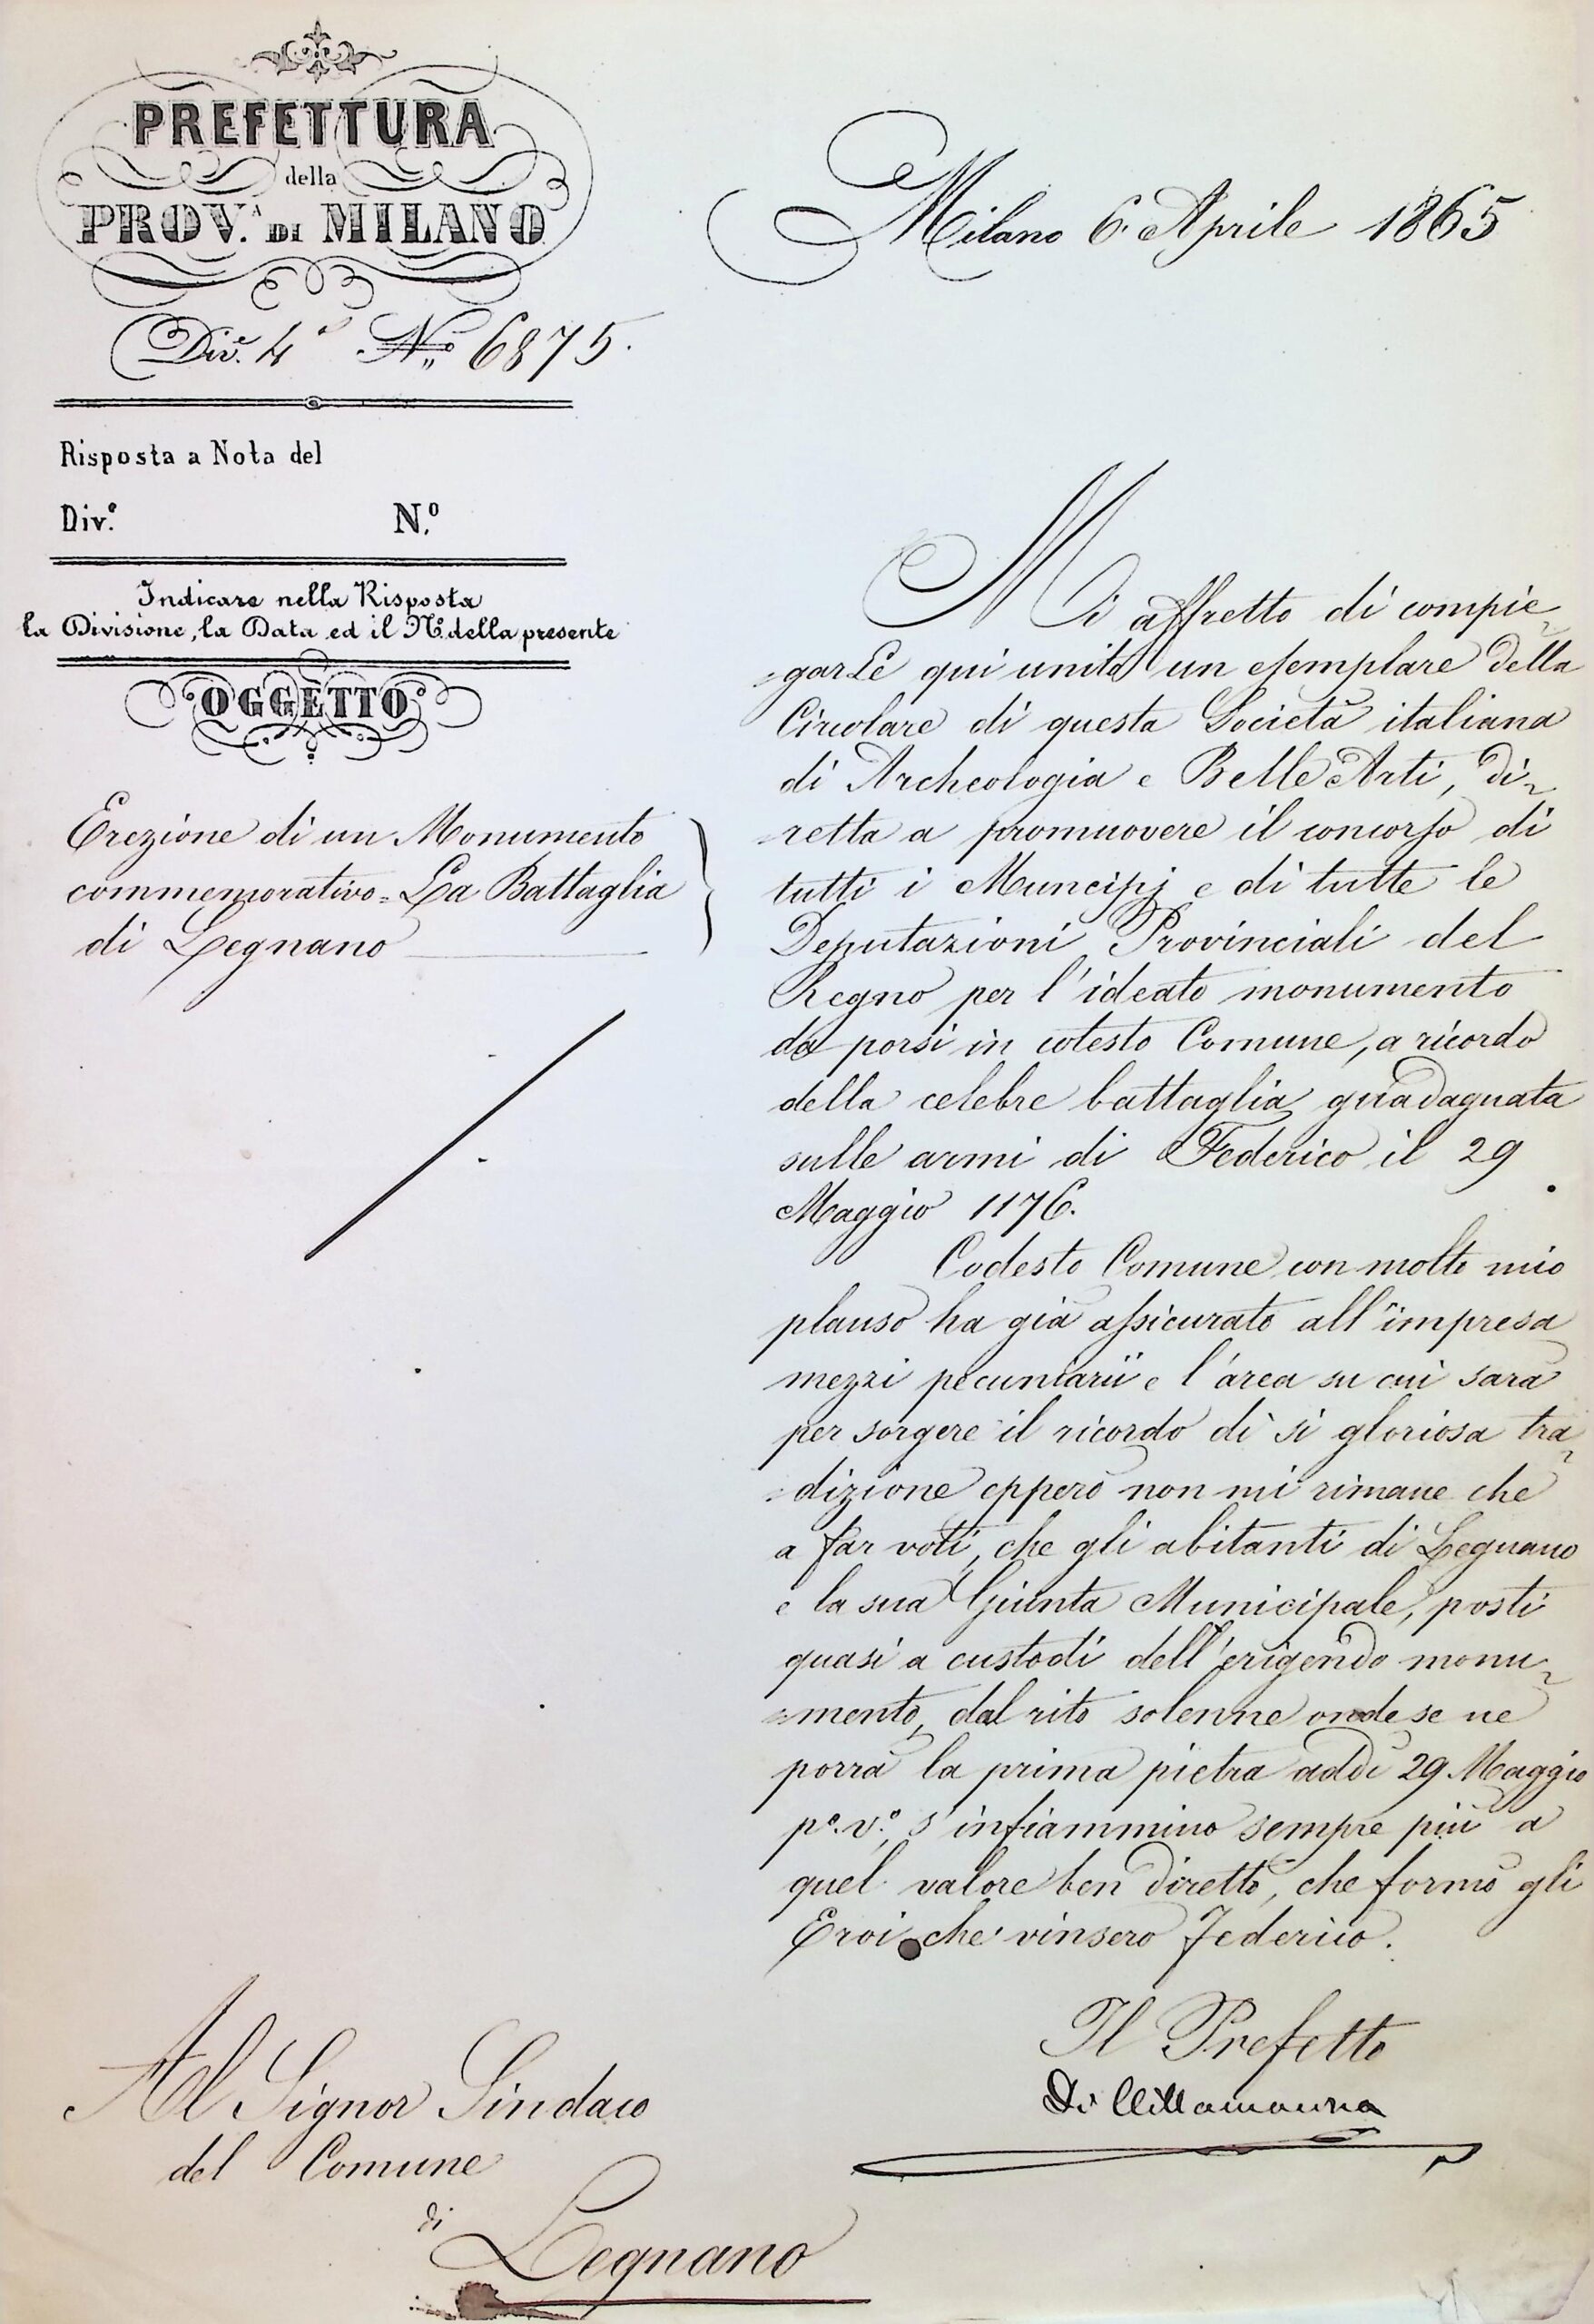 PREFETTURA
della
PROV.A DI MILANO
Div.e 4a No 6875.
Risposta a Nota del
Div.e N.o
Indicare nella Risposta
la Divisione, la Data ed il No. della presente
OGGETTO
Erezione di un Monumento
commemorativo = La Battaglia
di Legnano
Milano 6. Aprile 1865
Mi affretto di compie-
-garLe qui unito un esemplare della
Circolare di questa Società italiana
di Archeologia e Belle Arti, di-
-retta a promuovere il concorso di
tutti i Muncipj e di tutte le
Deputazioni Provinciali del
Regno per l'ideato monumento
da porsi in cotesto Comune, a ricordo
della celebre battaglia guadagnata
sulle armi di Federico il 29
Maggio 1176.
Codesto Comune con molto mio
plauso ha già assicurato all'impresa
mezzi pecuniarii e l'area su cui sarà
per sorgere il ricordo di sì gloriosa tra-
-dizione epperò non mi rimane che
a far voti, che gli abitanti di Legnano
e la sua Giunta Municipale, posti
quasi a custodi dell'erigendo monu-
-mento, dal rito solenne onde se ne
porrà la prima pietra addì 29 Maggio
po. vo., s'infiammino sempre più a
quel valore ben diretto, che formò gli
Eroi che vinsero Federico.
Il Prefetto
Di Villamarina
Al Signor Sindaco
del Comune
di
Legnano